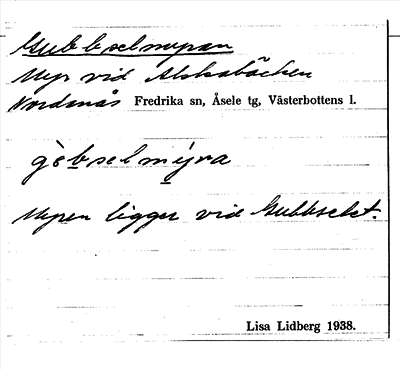 Gubbselmyran
Myr vid Alskabäcken
Nordanås Fredrika sn, Åsele tg, Västerbottens l.
gèbselmýra
Myren ligger vid Gubbselet.
Lisa Lidberg 1938.